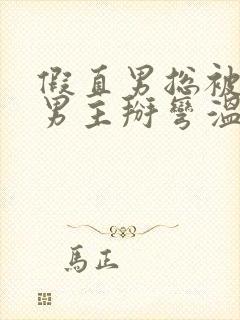 假直男总被
男主掰彎溫
馬正